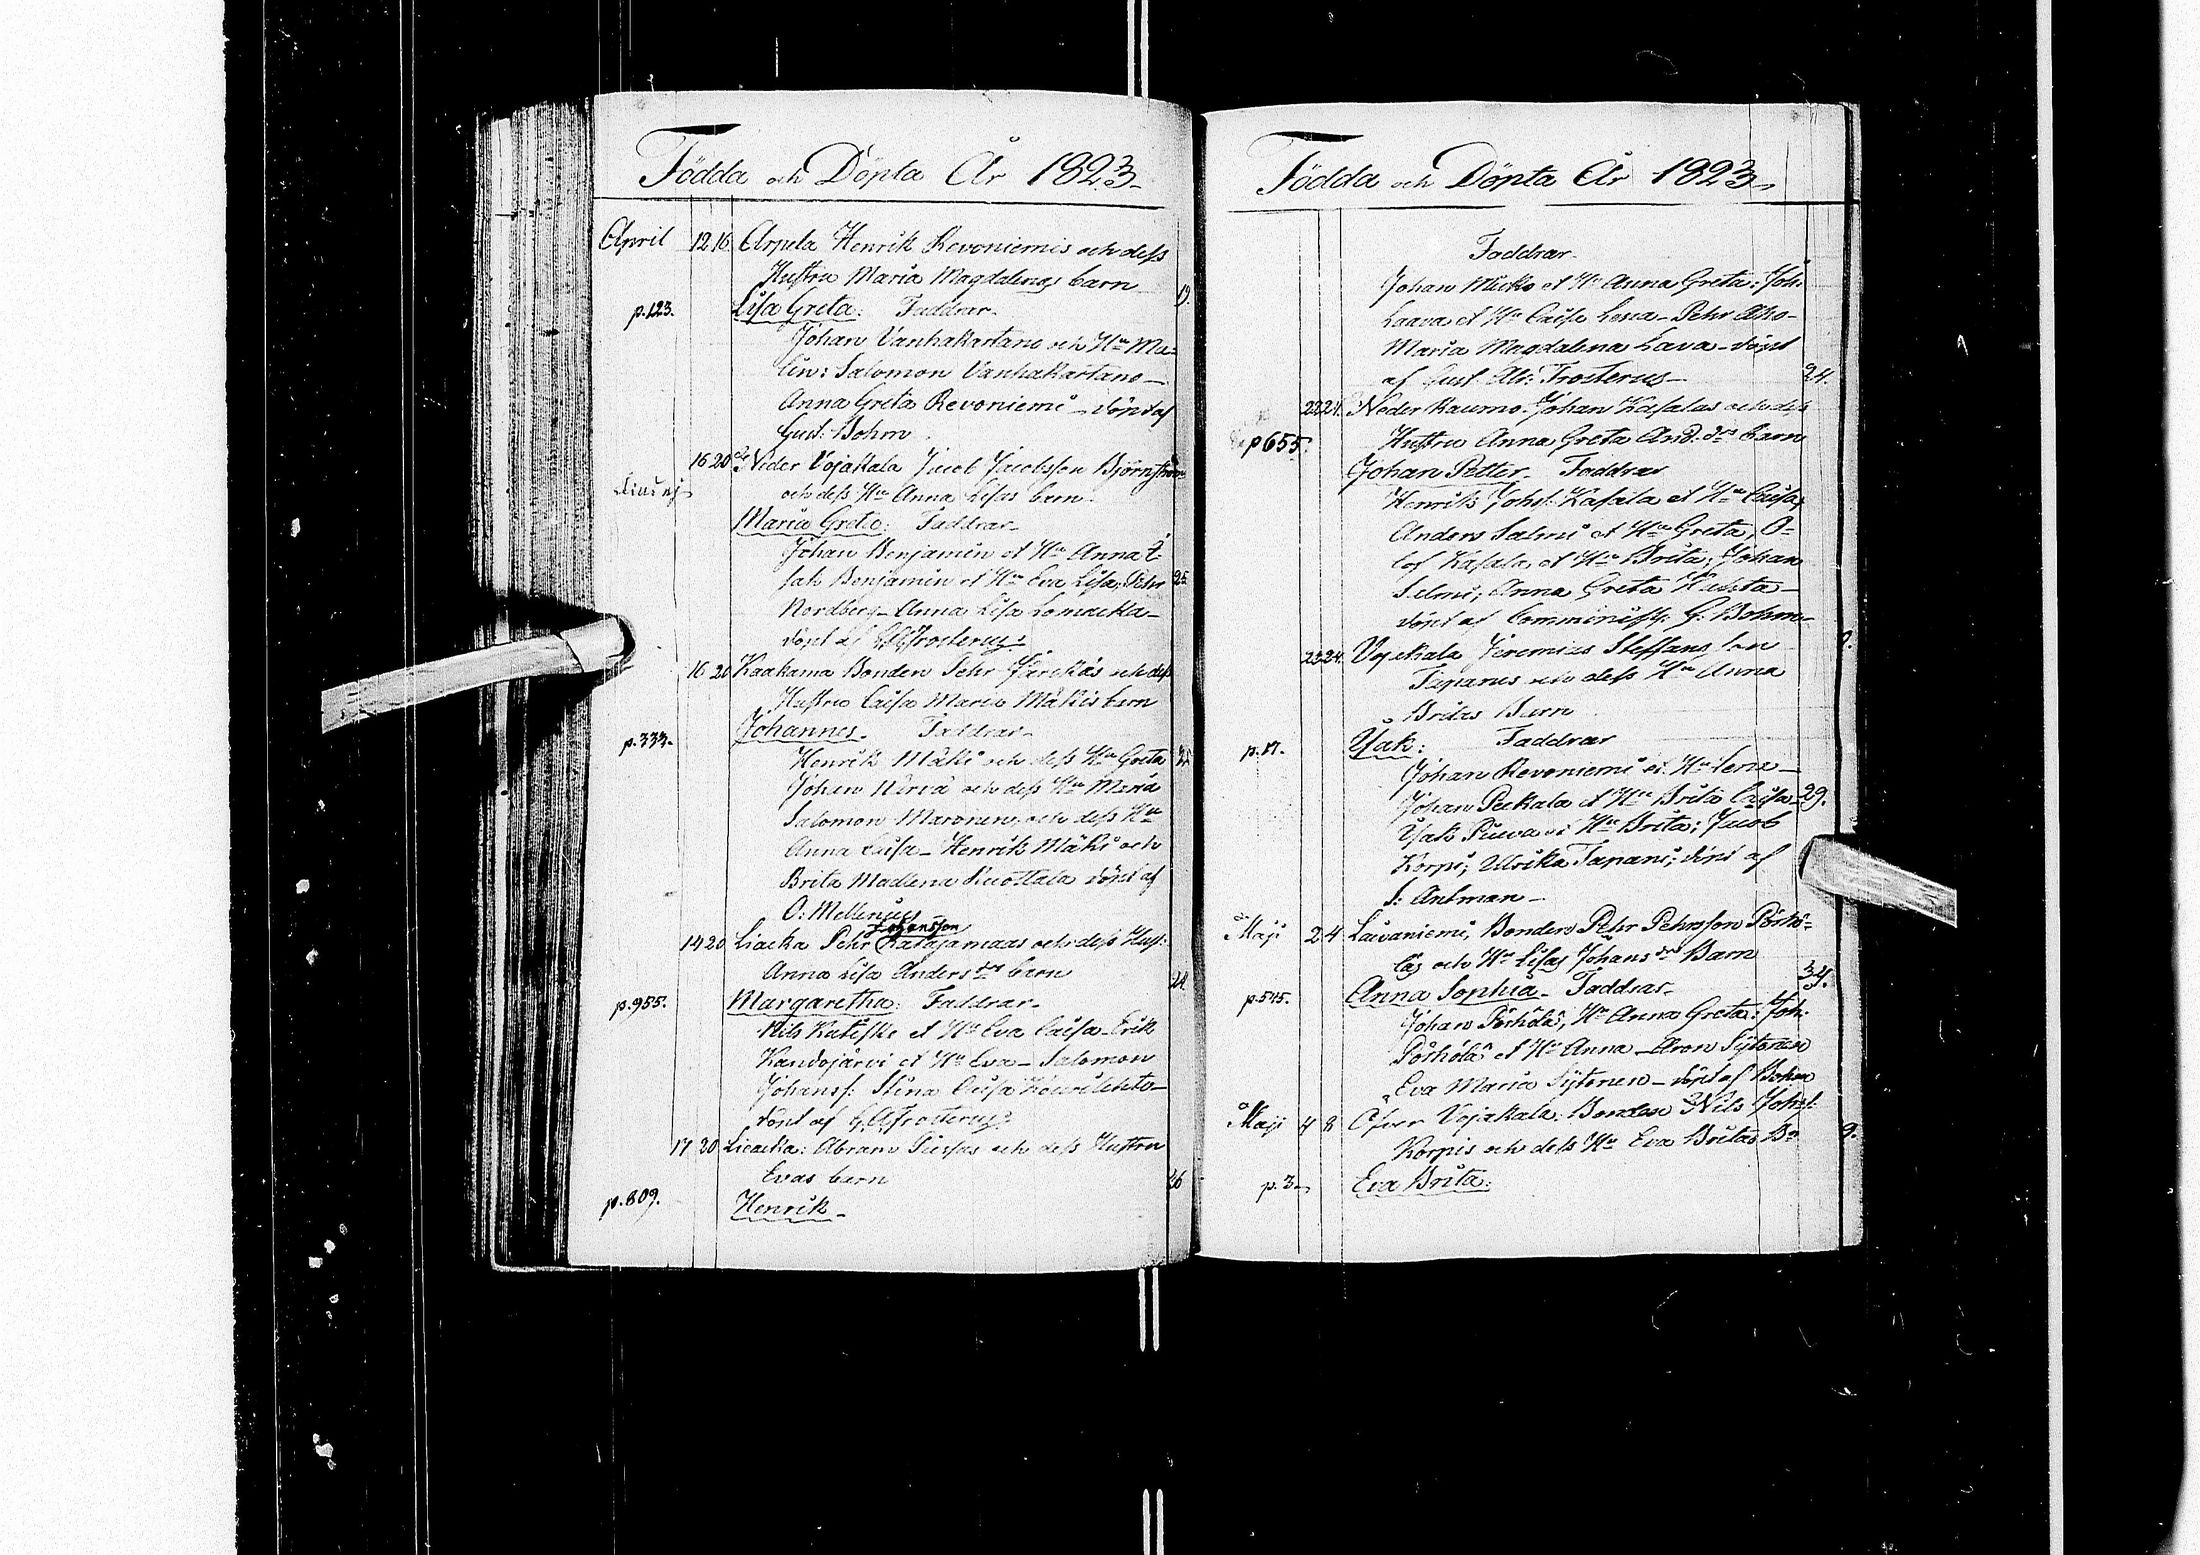 Födda och Döpta År 1823
April 12 16 Arpela Henrik Revoniemis och dess
Hustru Maria Magdalenas barn 19.
p.123. Lisa Greta: Faddrar
Johan Vanhakartano och Hu Ma-
lin: Salomon Vanhakartano
Anna Greta Revoniemi döpt af
Gust: Bohm
16 20 Neder Vojakala Jacob Jacobsson Björnström
och dess Hu Anna Lisas barn
Maria Greta: Faddrar
Johan Benjamin et Hu Anna I-
sak Benjamin et Hu Eva Lisa; Pehr 25
Nordberg Anna Lisa Lomakka
döpt af Frosterus
16 20 Kaakama Bonden Pehr och dess
Hustru Caisa Maria Mäkis barn
p.333. Johannes Faddrar
Henrik Mäki och dess Hu Greta 35
Johan och dess Hu Maria
Salomon Maronen och dess Hu
Anna Caisa Henrik Mäki och
Brita Madlena döpt af
O: Mellenius
Johansson
14 20 Liacka Pehr Katajamaas och dess Hust:
Anna Lisa Anders dr barn 24
p.955. Margaretha: Faddrar
Nils et Hu Eva Caisa Erik
Kandojärvi et Hu Eva Salomon
Johanss: Stina Caisa
döpt af Frosterus
17 20 Liacka: Abram och dess Hustru
Evas barn 26
p.809. Henrik
Födda och Döpta År 1823
Faddrar
Johan et Hu Anna Greta; Joh.
Laava et Hu Caisa Pehr Aho
Maria Magdalena Lava döpt
af Gust. Ad: Frosterus 24.
22 24 Neder Raumo Johan Kasalas och dess
p 655. Hustru Anna Greta And. drs barn
Johan Petter Faddrar
Henrik Johs: Kasala et Hu Caisa;
Anders Salmi et Hu Greta, O-
lof Kasala et Hu Brita; Johan
Selmi; Anna Greta
döpt af G. Bohm
23 24 Vojakala Jeremias Steffans son
Tapanis och dess Hu Anna
Britas Barn
p.17. Isak: Faddrar
Johan Revoniemi et Hu Lena
Johan Peckala et Hu Brita Caisa 29.
Isak et Hu Brita; Jacob
Korpi; Ulrika Tapani; döpt af
I: Antman
Maji 2 4 Laivaniemi, Bonden Pehr Pehrsson Pörhö-
läs och Hu Lisas Johans drs Barn 34.
p.545. Anna Sophia Faddrar
Johan Pörhölä, Hu Anna Greta; Joh.
Pörhölä et Hu Anna Aron Sytonen
Eva Maria Sytonen döpt af Bohm
Maji 4 8 Öfver Vojakala: Bonden Nils Johs:
Korpis och dess Hu Eva Britas Bn 9.
p.3 Eva Brita: